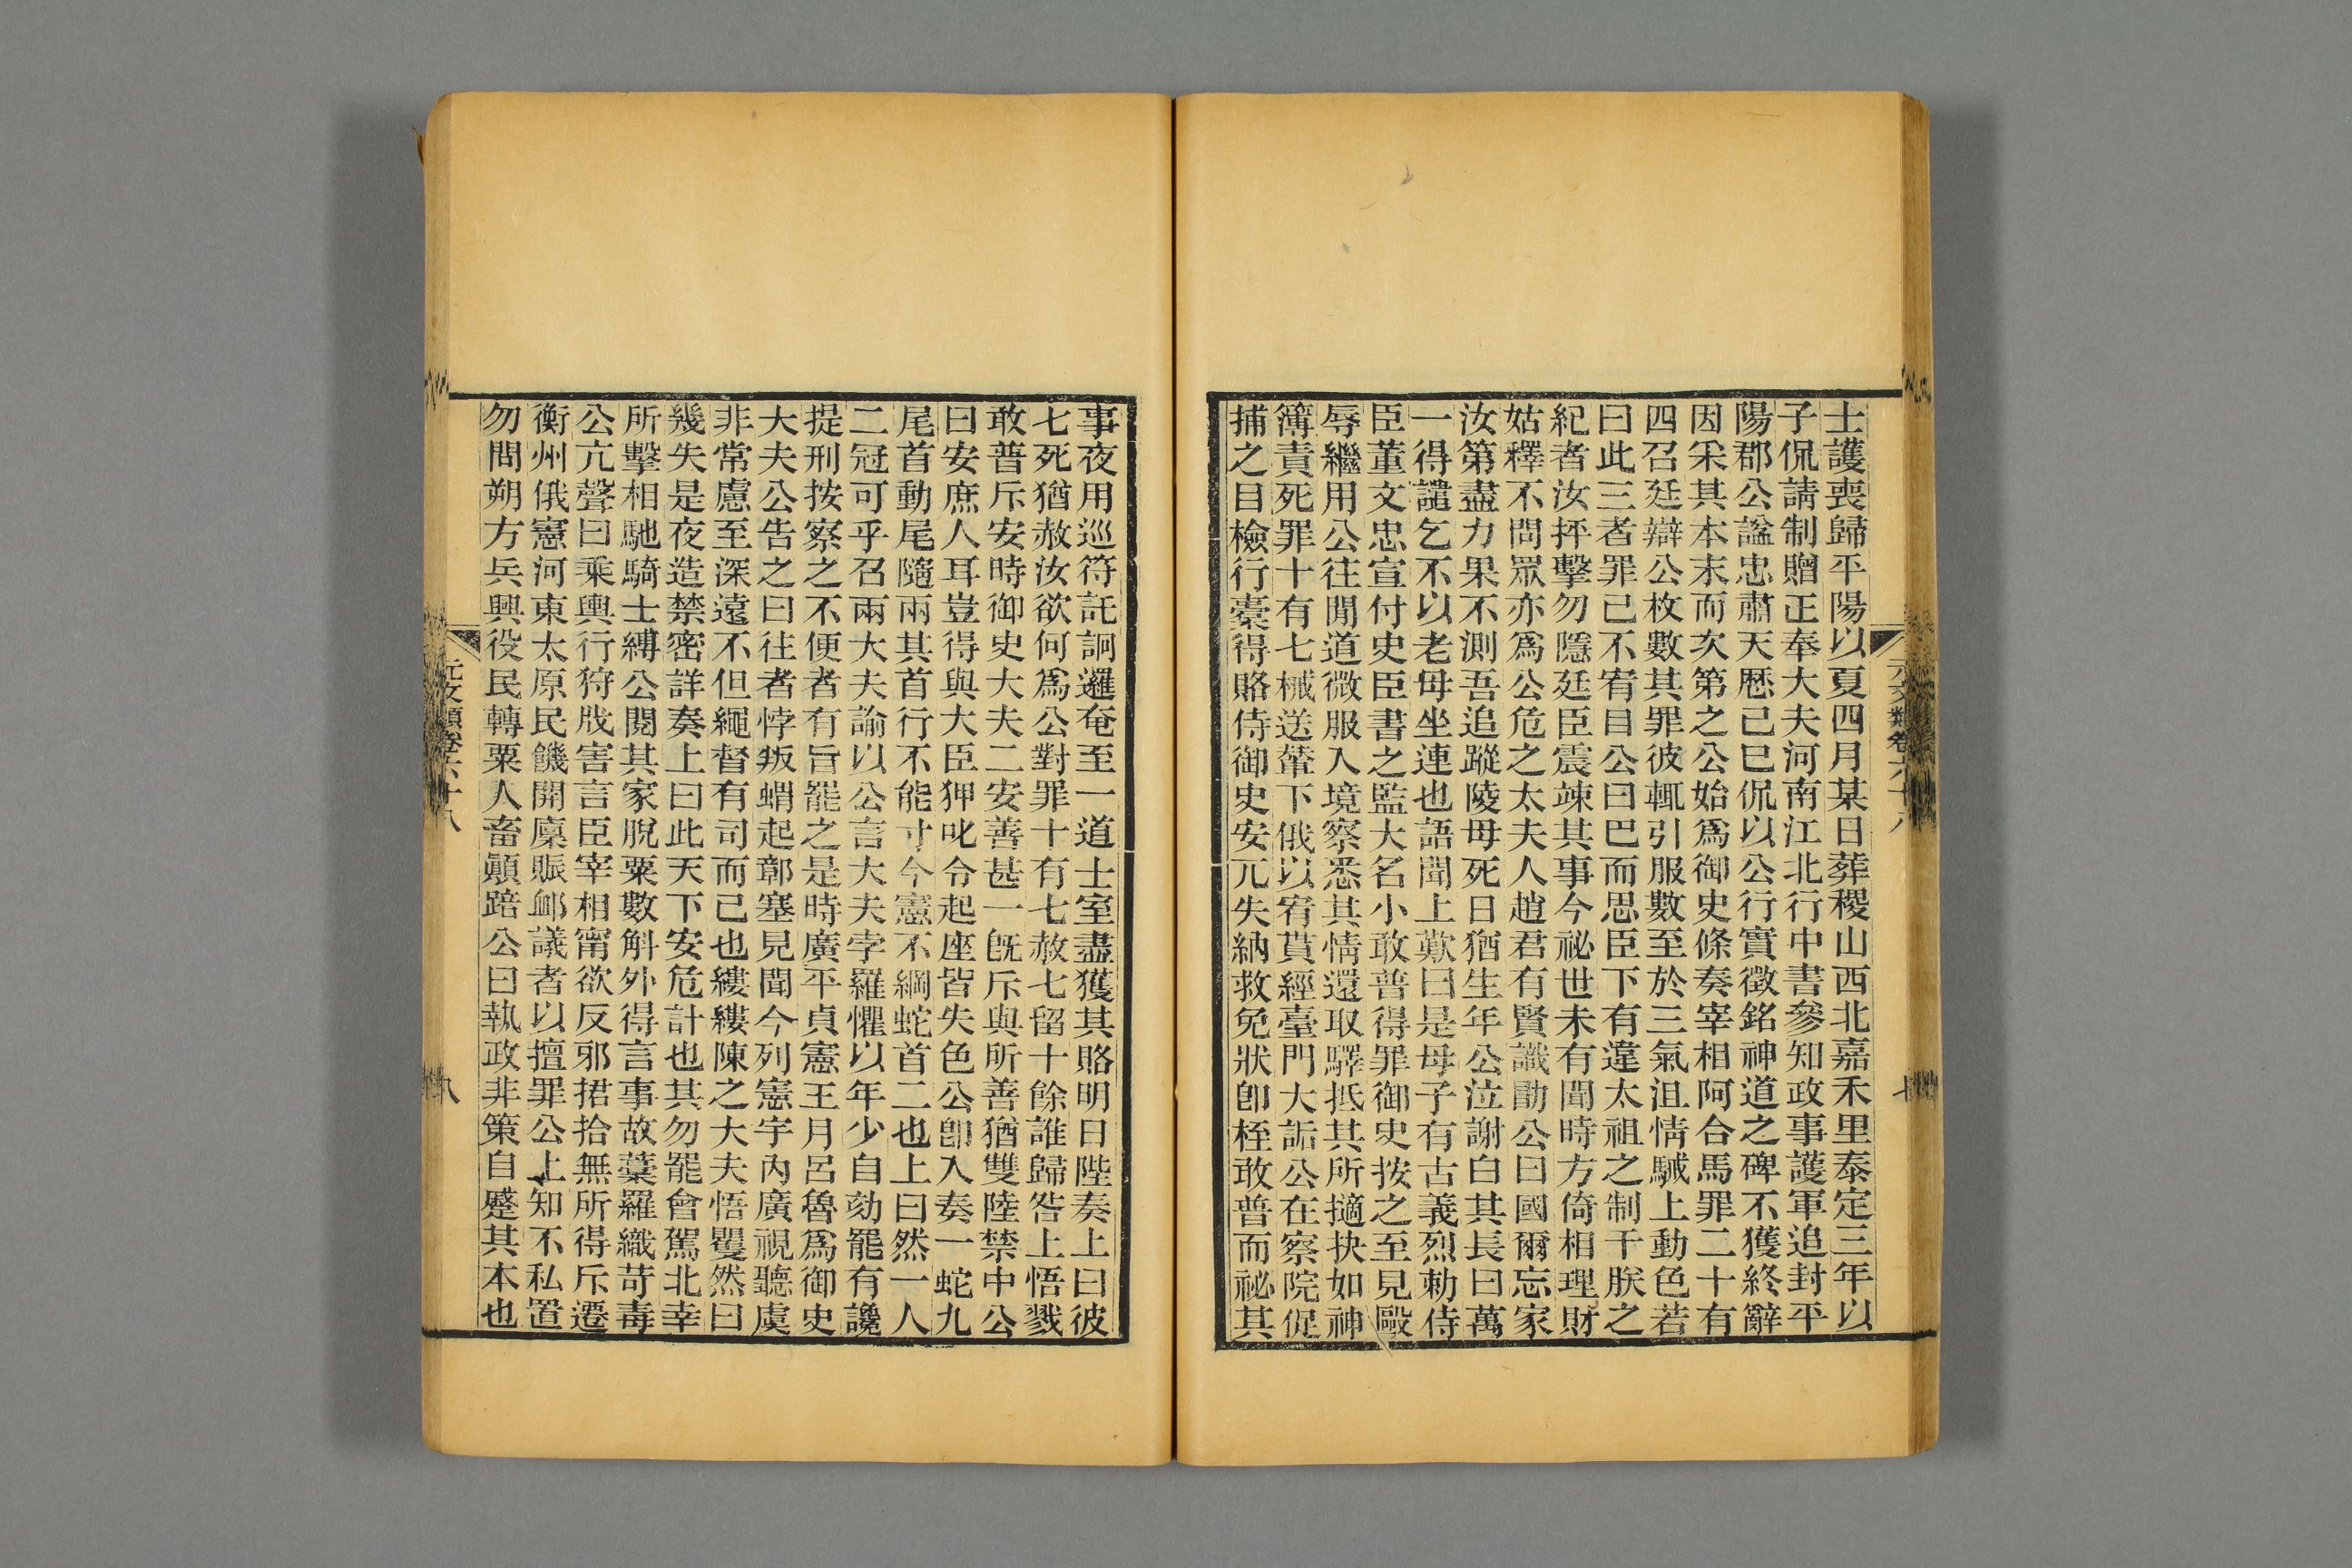 士護喪歸平陽以夏四月某日葬稷山西北嘉禾里泰定三年以
子侃請制贈正奉大夫河南江北行中書參知政事護軍追封平
陽郡公諡忠肅天曆己巳侃以公行實徵銘神道之碑不獲終辭
因采其本末而次第之公始爲御史條奏宰相阿合馬罪二十有
四召廷辯公枚數其罪彼輒引服數至於三氣沮情駴上動色若
曰此三者罪已不宥目公曰巴而思臣下有違太祖之制干朕之
紀者汝抨擊勿隱廷臣震竦其事今祕世未有聞時方倚相理財
姑釋不問眾亦爲公危之太夫人趙君有賢識勖公曰國爾忘家
汝第盡力果不測吾追蹤陵母死日猶生年公泣謝白其長曰萬
一得譴乞不以老母坐連也語聞上歎曰是母子有古義烈勅侍
臣董文忠宣付史臣書之監大名小敢普得罪御史按之至見毆
辱繼用公往聞道微服入境察悉其情還取驛抵其所擿抉如神
簿責死罪十有七械送輦下俄以宥貰經臺門大詬公在察院促
捕之目檢行橐得賂侍御史安兀失納救免狀卽桎敢普而祕其
元文類卷六十八
七
事夜用巡符託詗邏奄至一道士室盡獲其賂明日陛奏上曰彼
七死猶赦汝欲何爲公對罪十有七赦七留十餘誰歸咎上悟戮
敢普斥安時御史大夫二安善甚一旣斥與所善猶雙陸禁中公
曰安庶人耳豈得與大臣狎叱令起座皆失色公卽入奏一蛇九
尾首動尾隨兩其首行不能寸今憲不綱蛇首二也上曰然一人
二冠可乎召兩大夫諭以公言大夫孛羅懼以年少自劾罷有讒
提刑按察之不便者有旨罷之是時廣平貞憲王月呂魯爲御史
大夫公告之曰往者悖叛蝟起鄣塞見聞今列憲宇內廣視聽虞
非常慮至深遠不但繩督有司而已也縷縷陳之大夫悟矍然曰
幾失是夜造禁密詳奏上曰此天下安危計也其勿罷會駕北幸
所擊相馳騎士縛公閱其家脫粟數斛外得言事故藁羅織苛毒
公亢聲曰乘輿行狩戕害言臣宰相甯欲反邪捃拾無所得斥遷
衡州俄憲河東太原民饑開廩賑卹議者以擅罪公上知不私置
勿問朔方兵興役民轉粟人畜顚踣公曰執政非策自蹙其本也
元文類卷六十八
八